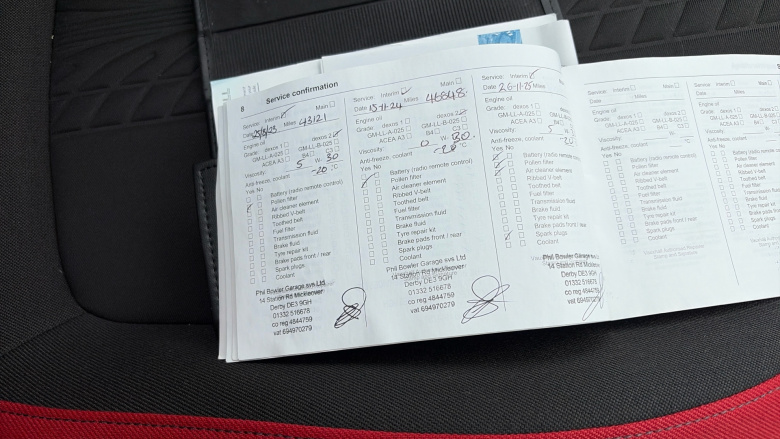 8 Service confirmation
Service: Interim Main
Date Miles 43121
Engine oil
Grade: dexos 1 dexos 2
GM-LL-A-025 GM-LL-B-025
ACEA A3 B4 C3
Viscosity: 5 W- 30
Anti-freeze, coolant -20 °C
Yes No
Battery (radio remote control)
Pollen filter
Air cleaner element
Ribbed V-belt
Toothed belt
Fuel filter
Transmission fluid
Brake fluid
Tyre repair kit
Brake pads front / rear
Spark plugs
Coolant
Phil Bowler Garage svs Ltd
14 Station Rd Mickleover
Derby DE3 9GH
01332 516678
co reg 4844759
vat 694970279
Service: Interim Main
Date 15-11-24 Miles 46648
Engine oil
Grade: dexos 1 dexos 2
GM-LL-A-025 GM-LL-B-025
ACEA A3 B4 C3
Viscosity: 0 W- 30
Anti-freeze, coolant -20 °C
Yes No
Battery (radio remote control)
Pollen filter
Air cleaner element
Ribbed V-belt
Toothed belt
Fuel filter
Transmission fluid
Brake fluid
Tyre repair kit
Brake pads front / rear
Spark plugs
Coolant
Phil Bowler Garage svs Ltd
14 Station Rd Mickleover
Derby DE3 9GH
01332 516678
co reg 4844759
vat 694970279
Service: Interim
Date 26-11-25 Miles
Engine oil
Grade: dexos 1
GM-LL-A-025
ACEA A3
Viscosity: 5
Anti-freeze, coolant -20
Yes No
Battery (radio remote
Pollen filter
Air cleaner element
Ribbed V-belt
Toothed belt
Fuel filter
Transmission fluid
Brake fluid
Tyre repair kit
Brake pads front /
Spark plugs
Coolant
Phil Bowler Garage
14 Station Rd
Derby DE3 9GH
01332 516678
co reg
vat 694970279
Service: Interim Main
Date Miles
Engine oil
Grade: dexos 1 dexos 2
GM-LL-A-025 GM-LL-B-025
ACEA A3 B4 C3
Viscosity:
Anti-freeze, coolant
Yes No
Battery (radio remote control)
Pollen filter
Air cleaner element
Ribbed V-belt
Toothed belt
Fuel filter
Transmission fluid
Brake fluid
Tyre repair kit
Brake pads front / rear
Spark plugs
Coolant
Service: Interim
Date
Engine oil
Grade: dexos 1
GM-LL-A-025
ACEA A3
Viscosity:
Anti-freeze, coolant
Yes No
Battery (radio
Pollen filter
Air cleaner
Ribbed V-belt
Toothed belt
Fuel filter
Transmission
Brake fluid
Tyre repair kit
Brake pads
Spark plugs
Coolant